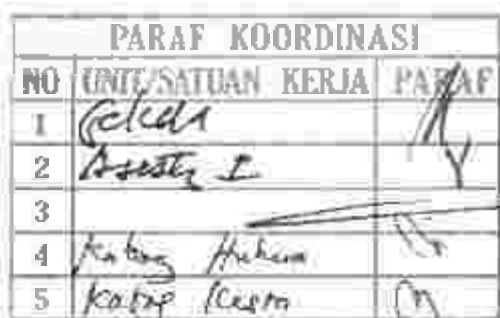 PARAF KOORDINASI
NO UNIT/SATUAN KERJA PARAF
1 Sekda
2 Asisten I
3
4 Kabag Hukum
5 Kabag Kesra